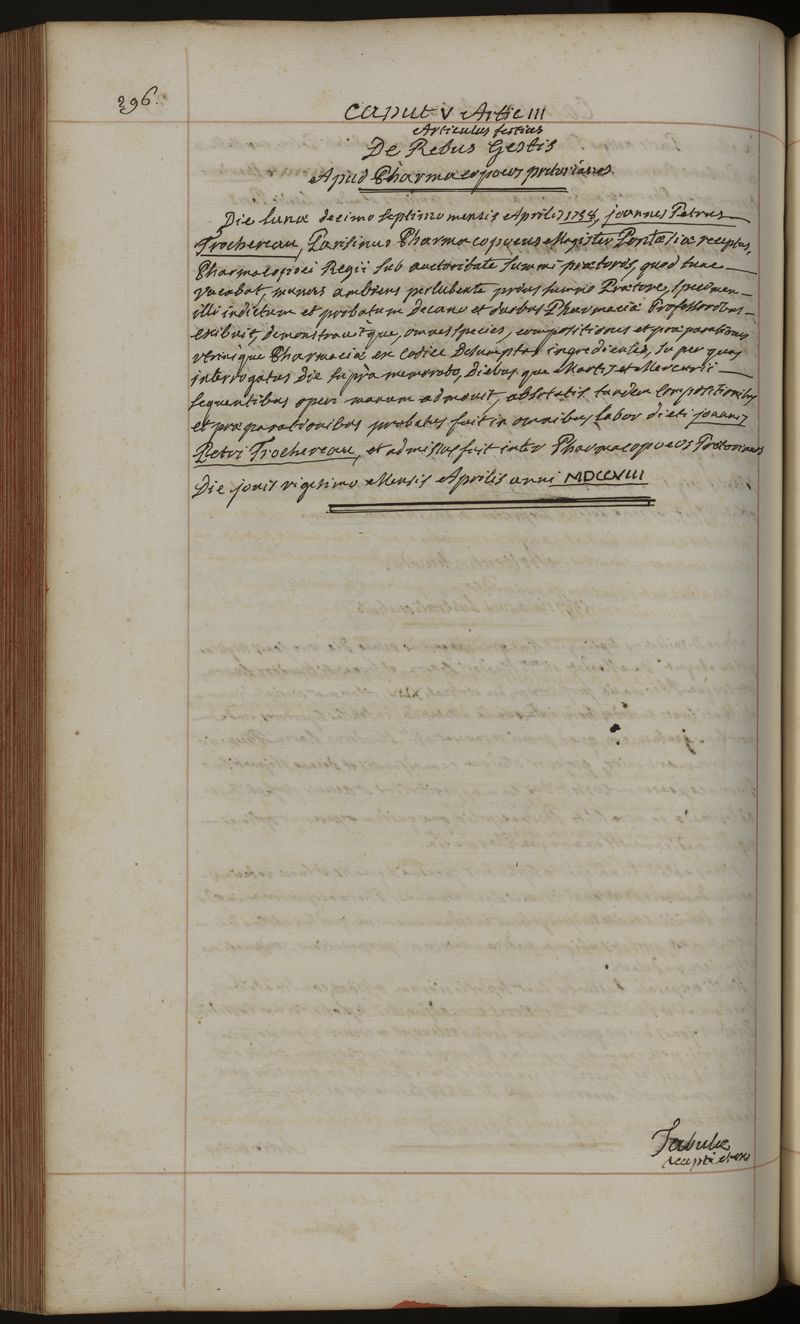 296.
Caput V Artic III
Articulus tertius
De Rebus Gestis
Apud Pharmacopoeos pretorianos
Die lunæ decimo septimo mensis Aprilis 1758, joannes Petrus
Trochereau, Parisinus Pharmacopoeus Magister Pontæsiæ receptus,
Pharmacopoei Regii sub auctoritate summi prætoris, quod tunc
vacabat, muneris ambiens perlubente prius summo Prætore, specimen
illi indictum et probatum Decano et duobus Pharmaciæ Professoribus
exibuit, demonstravitque, omnes species, compositiones et præparationes
utriusque Pharmaciæ ex codice Desumptas ingredientes, super quas
interrogatus Die supra memorato, Diebusque Martis et Mercurii
sequentibus operi manum admovit, absolutis tandem compositionibus
et præparationibus probatus fuit in omnibus labor dicti joannis
Petri Trochereau, et admissus fuit inter Pharmacopoeos Prætorianos
Die jovis vigesimo Mensis Aprilis anni MDCCLVIII
Tabulæ
recepti